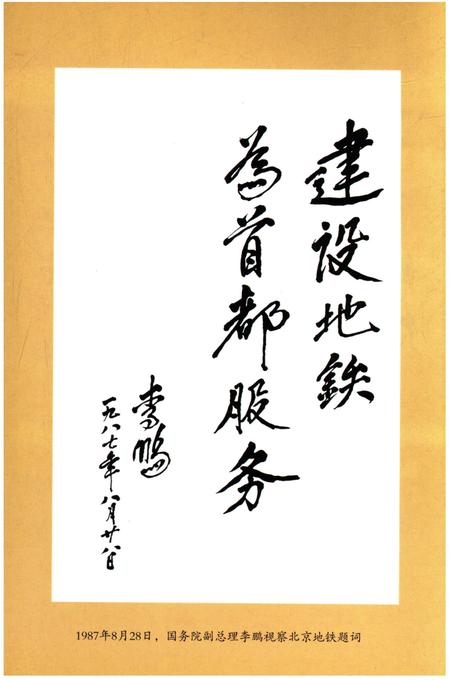 建设地鉄
為首都服务
李鹏
一九八七年八月廿八日
1987年8月28日，国务院副总理李鹏视察北京地铁题词